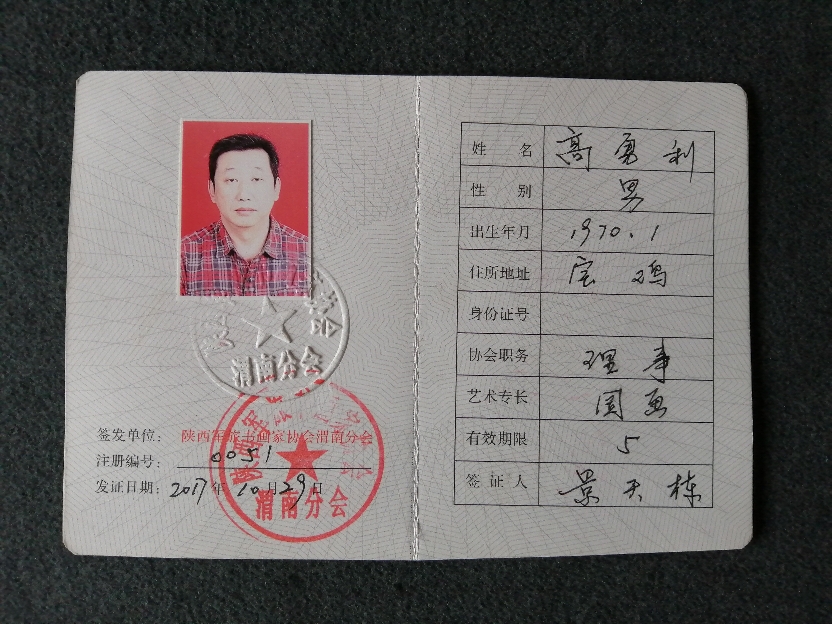 渭南分会
签发单位： 陕西军旅书画家协会渭南分会
注册编号： 0051
发证日期： 2017年10月29日
渭南分会
姓名 高勇利
性别 男
出生年月 1970.1
住所地址 宝鸡
身份证号
协会职务 理事
艺术专长 国画
有效期限 5
签证人 景天栋